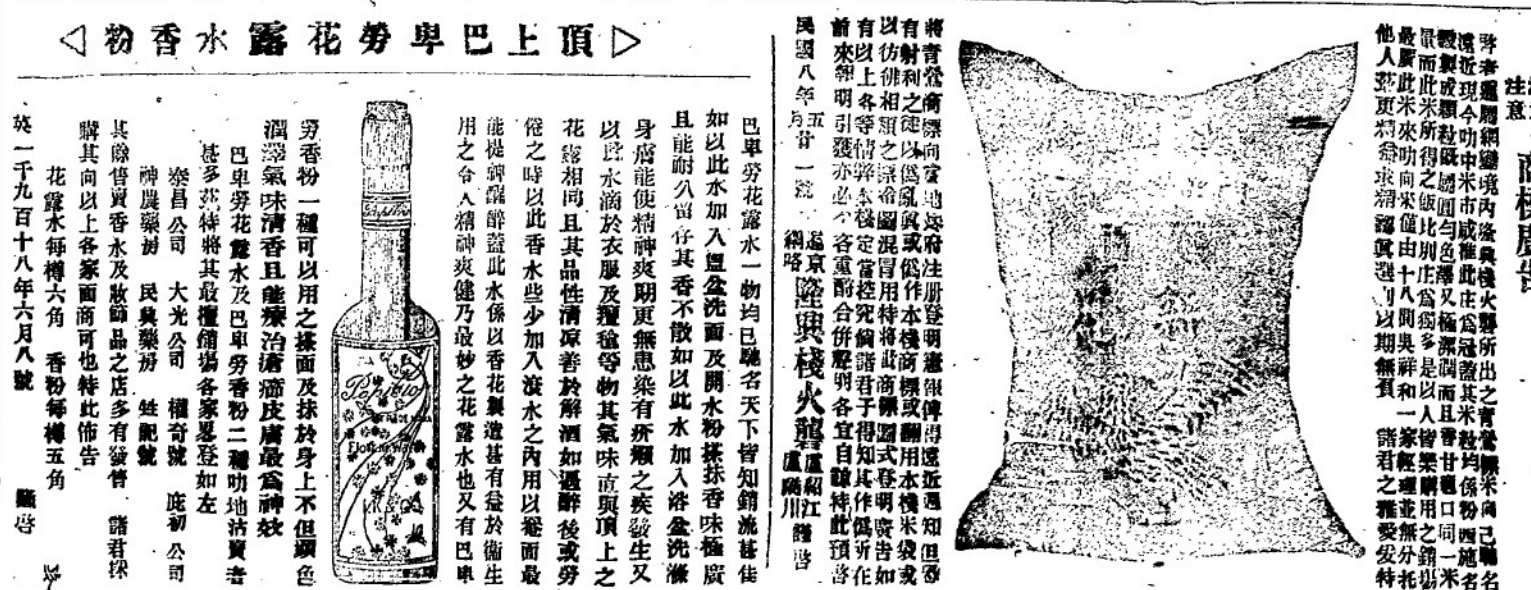 注意
商標廣告
弊者暹屬網鑾境內隆興棧火礱所出之青營標米向已馳名
遠近現今叻中米市咸推此庄為冠蓋其米粒均係粉西施名
穀製成顆粒旣屬圓勻色澤又極潔潤而且香甘適口同一米
量而此米所得之飯比別庄為獨多是以人皆樂購用之銷塲
最廣此米來叻向來僅由十八間興祥和一家經理並無分托
他人茲更精益求精認眞選別以期無負 諸君之雅愛爰特
將青營商標向當地政府注册登明憲報俾得遠近週知但恐
有射利之徒以偽亂眞或偽作本棧商標或翻用本棧米袋或
以彷彿相類之標希圖混冒用特將此商標圖式登明廣告如
有以上各等情弊本棧定當控究倘諸君子得知其作偽所在
前來報明引獲亦必 客重酧合併聲明各宜自諒特此預啓
民國八年五月廿一號 暹京網咯隆興棧火礱盧紹江盧颺川謹啓
▷頂上巴卑勞花露水香粉◁
巴卑勞花露水一物均已馳名天下皆知銷流甚佳
如以此水加入盥盆洗面及開水粉搽抹香味極廣
且能耐久留存其香不散如以此水加入浴盆洗滌
身痛能使精神爽期更無患染有疥癩之疾發生又
以此水滴於衣服及氈毯等物其氣味直與頂上之
花露相同且其品性清凉善於解酒如遇醉後或勞
倦之時以此香水些少加入滾水之內用以洗面最
能提神醒醉蓋此水係以香花製造甚有益於衞生
用之令人精神爽健乃最妙之花露水也又有巴卑
勞香粉一種可以用之搽面及抹於身上不但顏色
潤澤氣味清香且能療治瘡癤皮膚最為神效
巴卑勞花露水及巴卑勞香粉二種叻地沽賣者
甚多茲特將其最擅銷塲各家畧登如左
泰昌公司 大光公司 權奇號 庇初公司
神農藥房 民興藥房 姓記號
其餘售賣香水及妝飾品之店多有發售 諸君採
購其向以上各家面商可也特此佈告
花露水每樽六角 香粉每樽五角
英一千九百十八年六月八號 謹啓